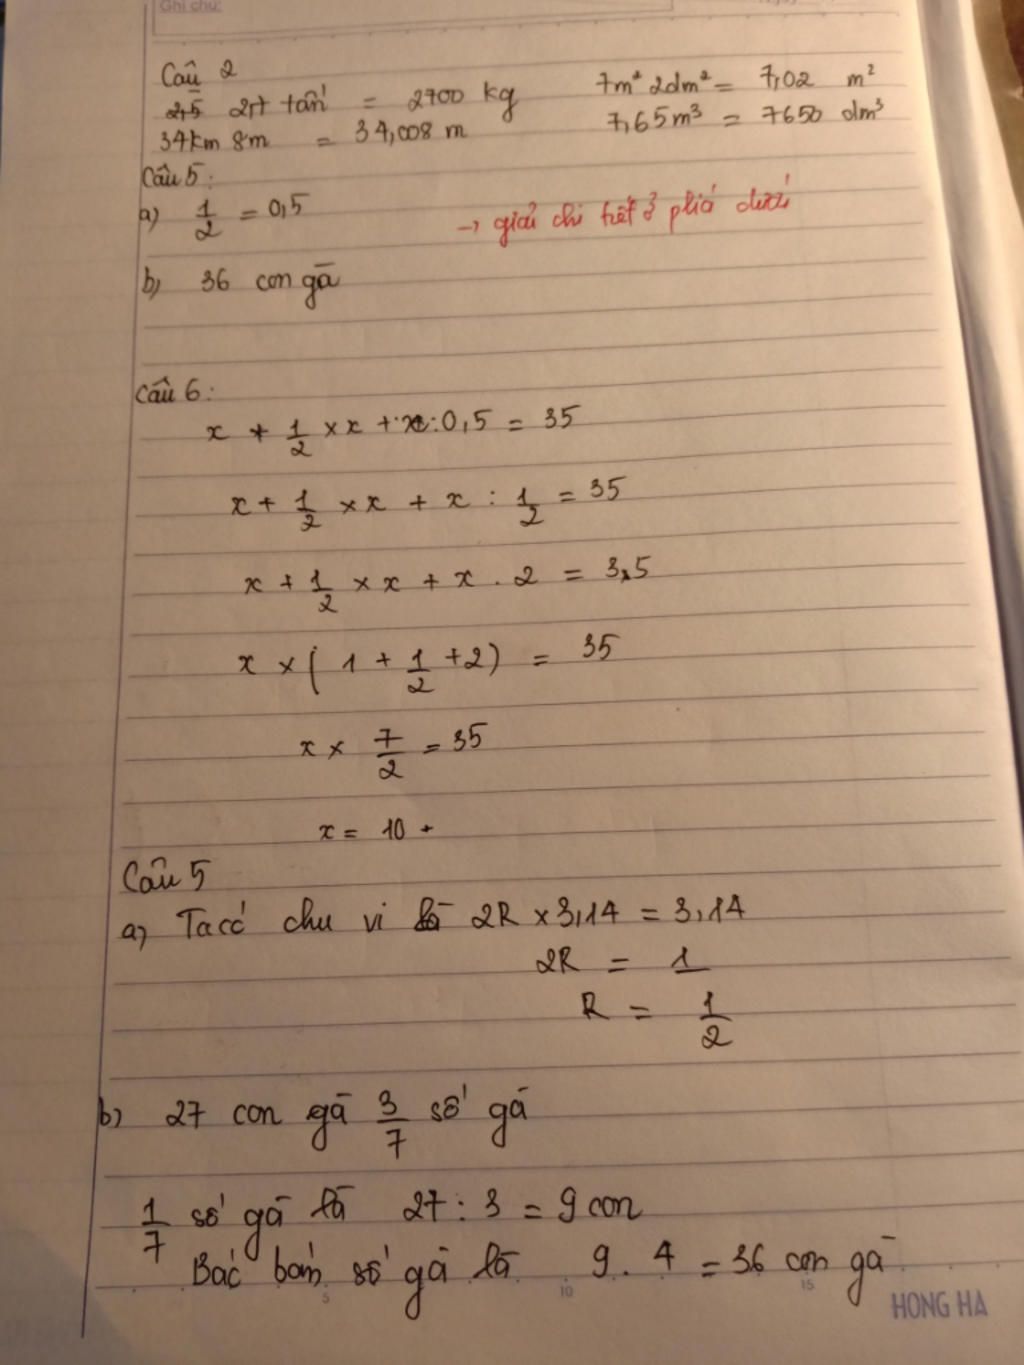 Ghi chú:
Câu 2
2,7 tấn = 2700 kg 7m² 2dm² = 7,02 m²
34km 8m = 34,008 m 7,65m³ = 7650 dm³
Câu 5:
a) 1/2 = 0,5 → giải chi tiết ở phía dưới
b) 36 con gà
Câu 6:
x + 1/2 × x + x : 0,5 = 35
x + 1/2 × x + x : 1/2 = 35
x + 1/2 × x + x . 2 = 35
x × ( 1 + 1/2 + 2) = 35
x × 7/2 = 35
x = 10
Câu 5
a) Ta có chu vi là 2R × 3,14 = 3,14
2R = 1
R = 1/2
b) 27 con gà 3/7 số gà
1/7 số gà là 27 : 3 = 9 con
Bác bán số gà là 9 . 4 = 36 con gà
5 10 15
HONG HA